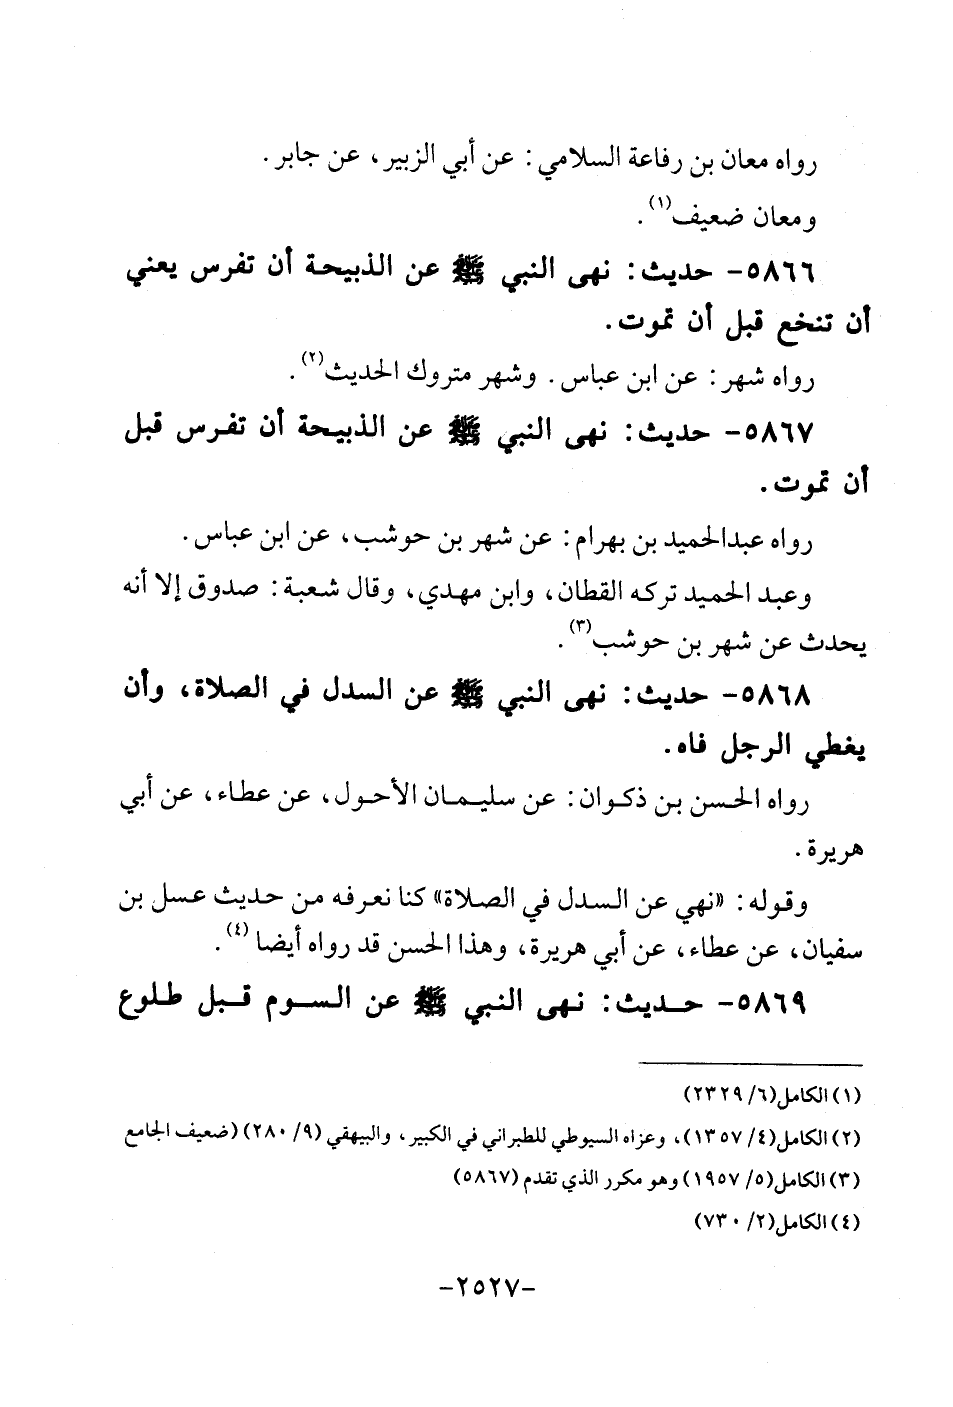 رواه معان بن رفاعة السلامي: عن أبي الزبير، عن جابر.
ومعان ضعيف(١).
٥٨٦٦- حديث: نهى النبي ﷺ عن الذبيحة أن تفرس يعني
أن تنخع قبل أن تموت.
رواه شهر: عن ابن عباس. وشهر متروك الحديث(٢).
٥٨٦٧- حديث: نهى النبي ﷺ عن الذبيحة أن تفرس قبل
أن تموت.
رواه عبدالحميد بن بهرام: عن شهر بن حوشب، عن ابن عباس.
وعبد الحميد تركه القطان، وابن مهدي، وقال شعبة: صدوق إلا أنه
يحدث عن شهر بن حوشب(٣).
٥٨٦٨- حديث: نهى النبي ﷺ عن السدل في الصلاة، وأن
يغطي الرجل فاه.
رواه الحسن بن ذكوان: عن سليمان الأحول، عن عطاء، عن أبي
هريرة.
وقوله: «نهي عن السدل في الصلاة» كنا نعرفه من حديث عسل بن
سفيان، عن عطاء، عن أبي هريرة، وهذا الحسن قد رواه أيضا (٤).
٥٨٦٩- حديث: نهى النبي ﷺ عن السوم قبل طلوع
(١) الكامل(٦/ ٢٣٢٩)
(٢) الكامل(٤/ ١٣٥٧)، وعزاه السيوطي للطبراني في الكبير، والبيهقي (٩/ ٢٨٠) (ضعيف الجامع
(٣) الكامل(٥/ ١٩٥٧) وهو مكرر الذي تقدم (٥٨٦٧)
(٤) الكامل(٢/ ٧٣٠)
-٢٥٢٧-